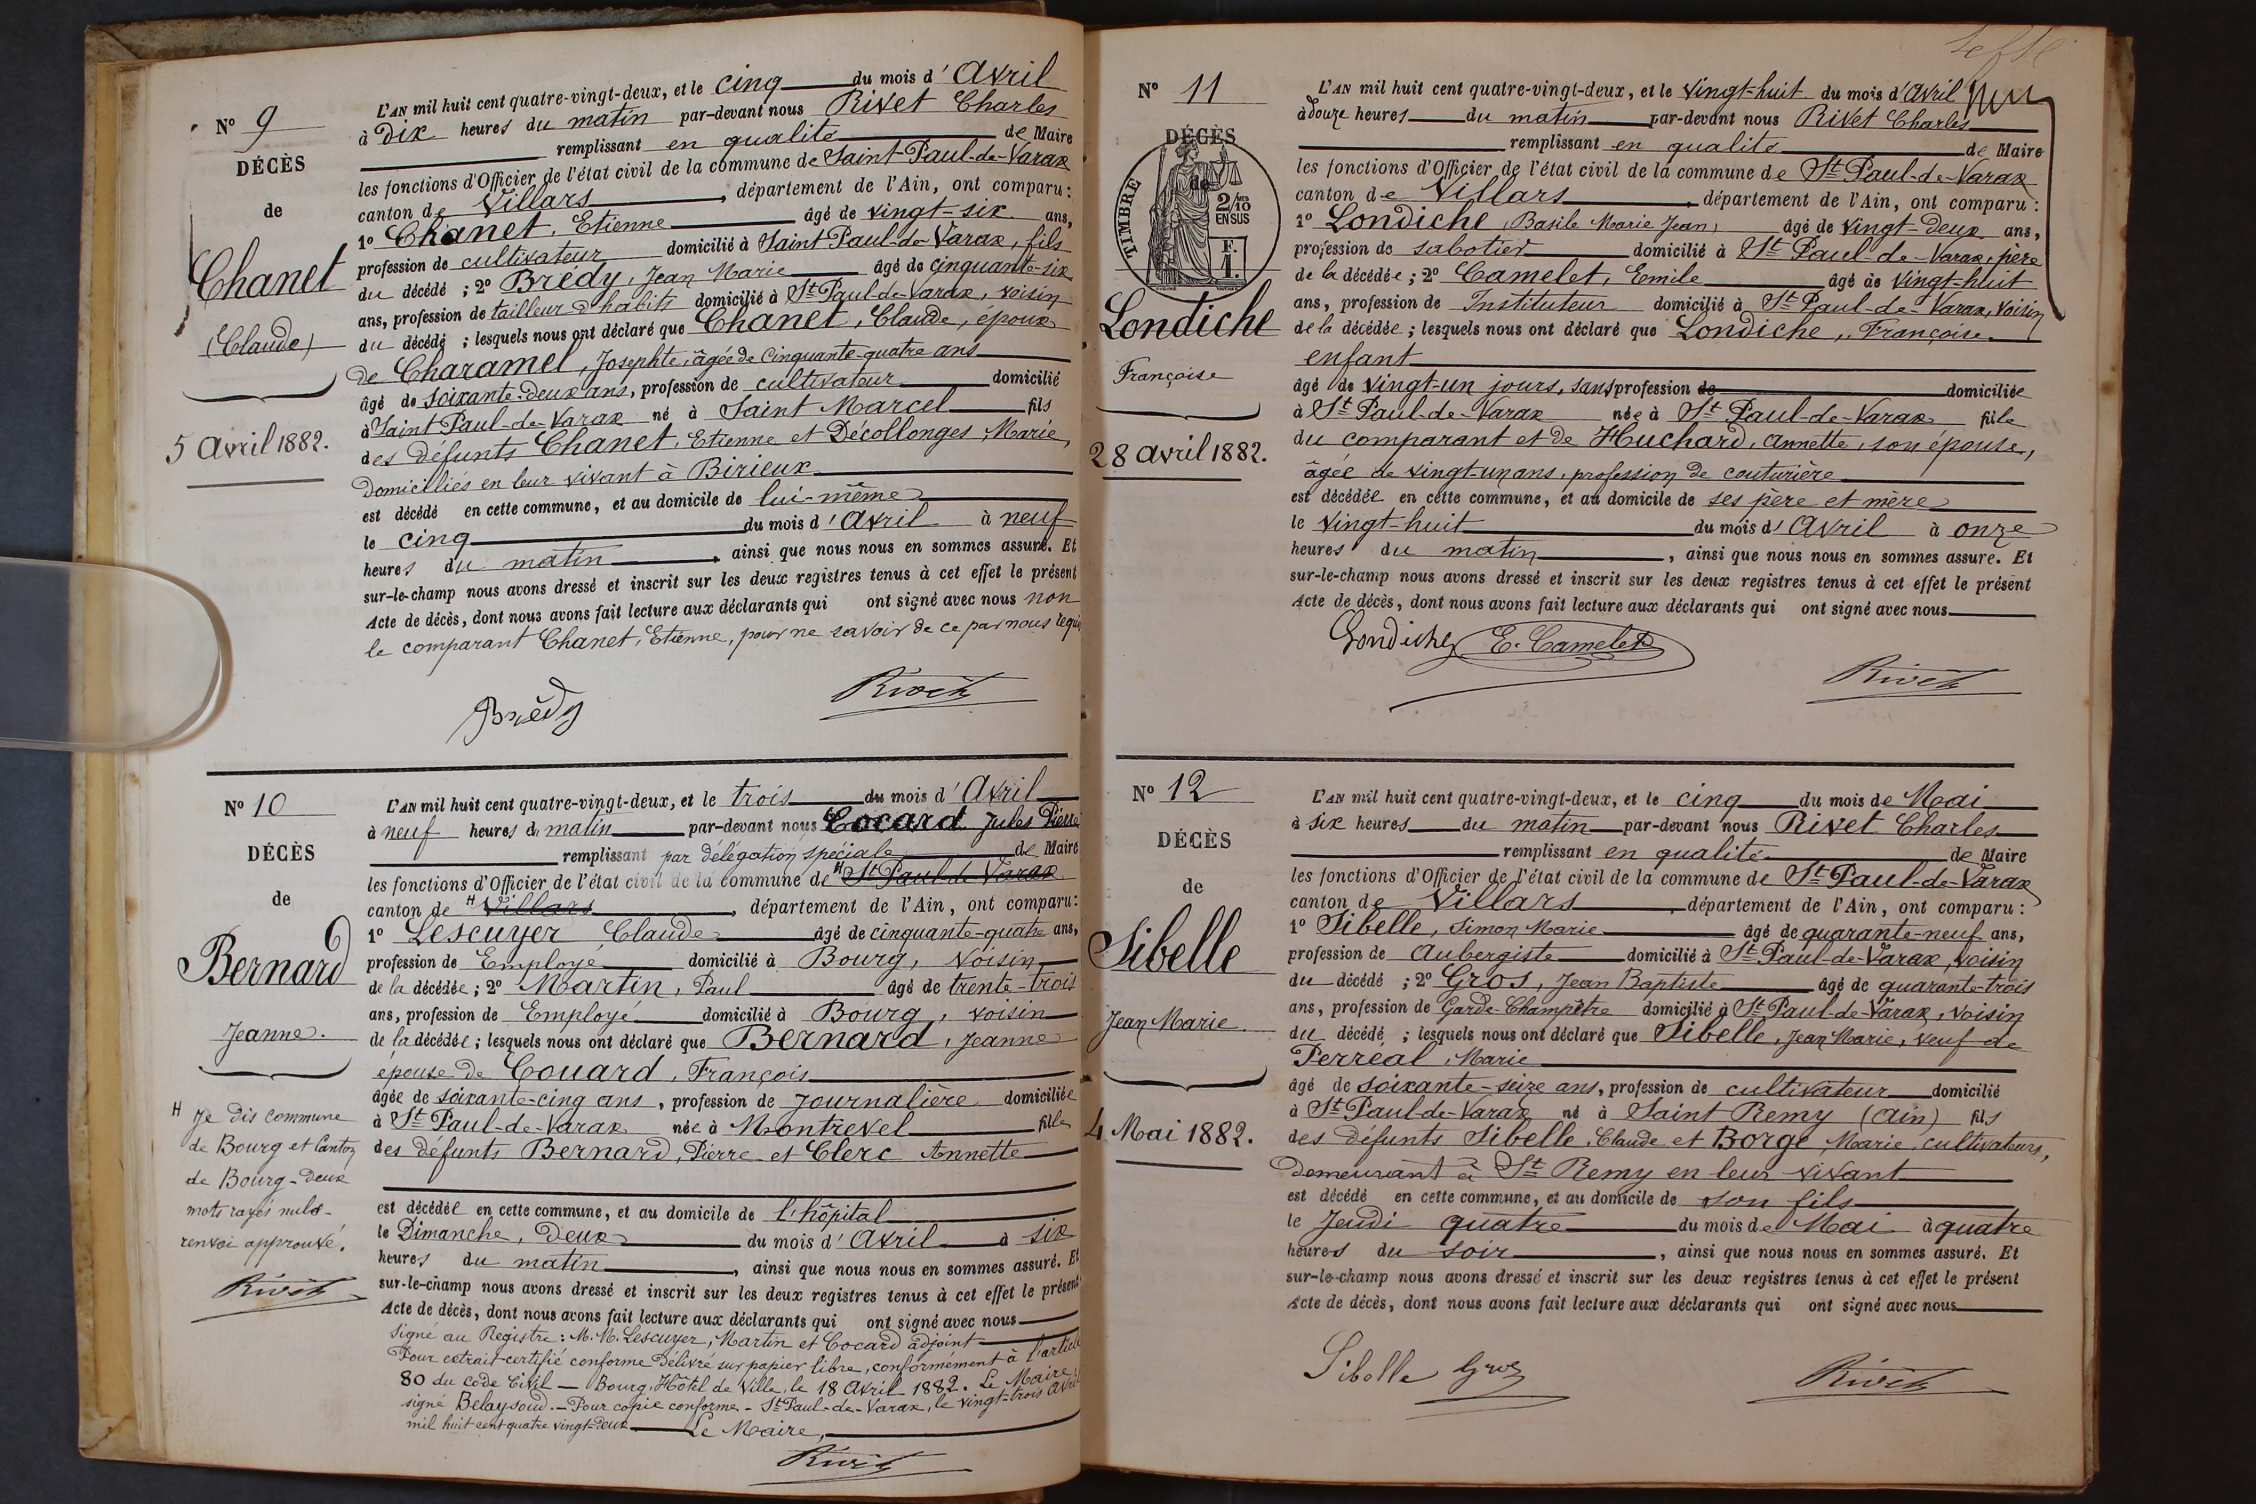 N° 9
DÉCÈS
de
Chanet
(Claude)
5 Avril 1882.
L'AN mil huit cent quatre-vingt-deux, et le cinq du mois d'Avril
à dix heures du matin par-devant nous Rivet Charles
remplissant en qualité de Maire
les fonctions d'Officier de l'état civil de la commune de Saint-Paul-de-Varax
canton de Villars, département de l'Ain, ont comparu:
1° Chanet, Etienne âgé de vingt-six ans,
profession de cultivateur domicilié à Saint Paul-de-Varax, fils
du décédé; 2° Brédy, Jean Marie âgé de cinquante-six
ans, profession de tailleur d'habits domicilié à St Paul-de-Varax, voisin
du décédé; lesquels nous ont déclaré que Chanet, Claude, époux
de Charamel, Josephte, âgée de cinquante-quatre ans
âgé de soixante-deux ans, profession de cultivateur domicilié
à Saint Paul-de-Varax né à Saint Marcel fils
des défunts Chanet, Etienne et Décollonges, Marie,
domiciliés en leur vivant à Birieux
est décédé en cette commune, et au domicile de lui-même
le cinq du mois d'Avril à neuf
heures du matin, ainsi que nous nous en sommes assuré. Et
sur-le-champ nous avons dressé et inscrit sur les deux registres tenus à cet effet le présent
Acte de décès, dont nous avons fait lecture aux déclarants qui ont signé avec nous non
le comparant Chanet, Etienne, pour ne savoir de ce par nous requis
Brédy Rivet
N° 10
DÉCÈS
de
Bernard
Jeanne.
H Je dis commune
de Bourg et Canton
de Bourg - Deux
mots rayés nuls -
renvoi approuvé.
Rivet
L'AN mil huit cent quatre-vingt-deux, et le trois du mois d'Avril
à neuf heures du matin par-devant nous Cocard Jules Pierre
remplissant par délégation spéciale de Maire
les fonctions d'Officier de l'état civil de la commune de H St Paul-de-Varax
canton de H Villars, département de l'Ain, ont comparu:
1° Lescuyer Claude âgé de cinquante-quatre ans,
profession de Employé domicilié à Bourg, voisin
de la décédée; 2° Martin, Paul âgé de trente-trois
ans, profession de Employé domicilié à Bourg, voisin
de la décédée; lesquels nous ont déclaré que Bernard, Jeanne
épouse de Couard, François
âgée de soixante-cinq ans, profession de journalière domiciliée
à St Paul-de-Varax née à Montrevel fille
des défunts Bernard, Pierre et Clerc Annette
est décédée en cette commune, et au domicile de l'hôpital
le Dimanche, deux du mois d'Avril à six
heures du matin, ainsi que nous nous en sommes assuré. Et
sur-le-champ nous avons dressé et inscrit sur les deux registres tenus à cet effet le présent
Acte de décès, dont nous avons fait lecture aux déclarants qui ont signé avec nous
Signé au Registre: M.M. Lescuyer, Martin et Cocard adjoint
Pour extrait certifié conforme Délivré sur papier libre, conformément à l'article
80 du code Civil - Bourg, Hôtel de Ville, le 18 Avril 1882. Le Maire
signé Belaysoud. - Pour copie conforme - St Paul-de-Varax, le vingt-trois Avril
mil huit cent quatre vingt-deux Le Maire,
Rivet
N° 11
DÉCÈS
de
TIMBRE
2/10
EN SUS
F.
1.
Londiche
Françoise
28 Avril 1882.
L'AN mil huit cent quatre-vingt-deux, et le vingt-huit du mois d'Avril
à douze heures du matin par-devant nous Rivet Charles
remplissant en qualité de Maire
les fonctions d'Officier de l'état civil de la commune de St Paul-de-Varax
canton de Villars, département de l'Ain, ont comparu:
1° Londiche, Basile Marie Jean, âgé de vingt-deux ans,
profession de sabotier domicilié à St Paul-de-Varax, père
de la décédée; 2° Camelet, Emile âgé de vingt-huit
ans, profession de Instituteur domicilié à St Paul-de-Varax, voisin
de la décédée; lesquels nous ont déclaré que Londiche, Françoise
enfant
âgé de vingt-un jours, sans profession de domiciliée
à St Paul-de-Varax née à St Paul-de-Varax, fille
du comparant et de Huchard, Annette, son épouse,
âgée de vingt-un ans, profession de couturière
est décédée en cette commune, et au domicile de ses père et mère
le vingt-huit du mois d'Avril à onze
heures du matin, ainsi que nous nous en sommes assuré. Et
sur-le-champ nous avons dressé et inscrit sur les deux registres tenus à cet effet le présent
Acte de décès, dont nous avons fait lecture aux déclarants qui ont signé avec nous
Londiche E. Camelet
Rivet
N° 12
DÉCÈS
de
Sibelle
Jean Marie
4 Mai 1882.
L'AN mil huit cent quatre-vingt-deux, et le cinq du mois de Mai
à six heures du matin par-devant nous Rivet Charles
remplissant en qualité de Maire
les fonctions d'Officier de l'état civil de la commune de St Paul-de-Varax
canton de Villars, département de l'Ain, ont comparu:
1° Sibelle, Simon Marie âgé de quarante-neuf ans,
profession de Aubergiste domicilié à St Paul-de-Varax, voisin
du décédé; 2° Gros, Jean Baptiste âgé de quarante-trois
ans, profession de Garde-Champêtre domicilié à St Paul-de-Varax, voisin
du décédé; lesquels nous ont déclaré que Sibelle, Jean Marie, veuf de
Perréal, Marie
âgé de soixante-seize ans, profession de cultivateur domicilié
à St Paul-de-Varax né à Saint Remy (Ain) fils
des défunts Sibelle, Claude et Borge, Marie, cultivateurs,
demeurant à St Remy en leur vivant
est décédé en cette commune, et au domicile de son fils
le Jeudi quatre du mois de Mai à quatre
heures du soir, ainsi que nous nous en sommes assuré. Et
sur-le-champ nous avons dressé et inscrit sur les deux registres tenus à cet effet le présent
Acte de décès, dont nous avons fait lecture aux déclarants qui ont signé avec nous
Sibelle Gros Rivet